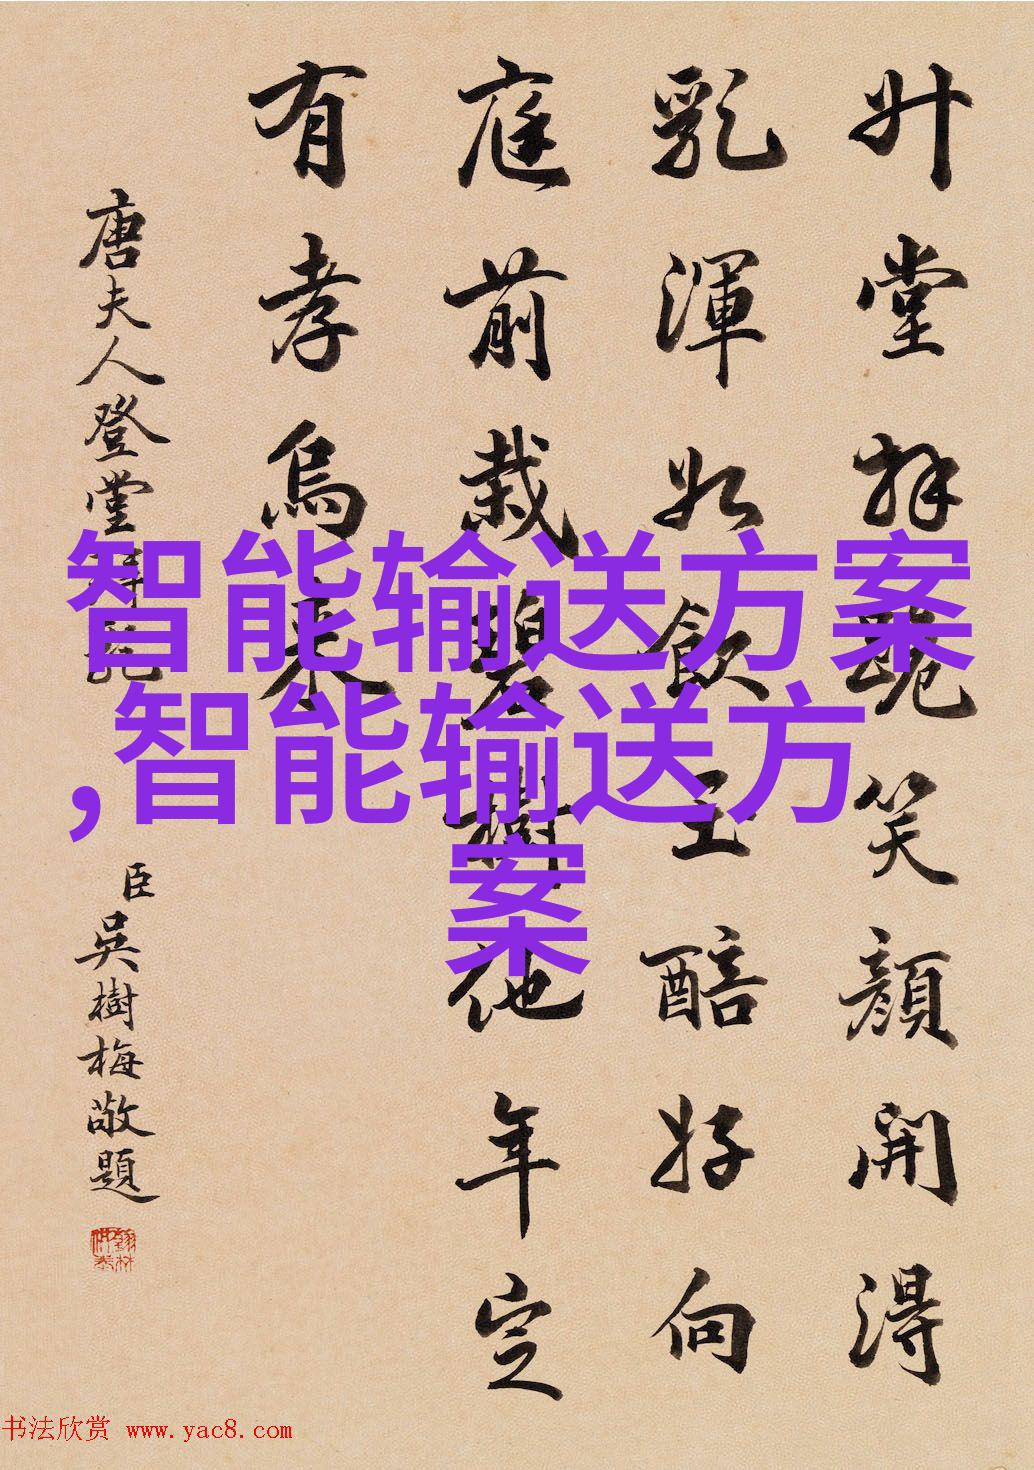 升堂拜笑顏開得
乳渾如飲玉醅好向
庭前栽碧樹他年定
有孝烏來
唐夫人登堂
臣吳樹梅敬題
智能输送方案
,智能输送方
案
书法欣赏 www.yac8.com